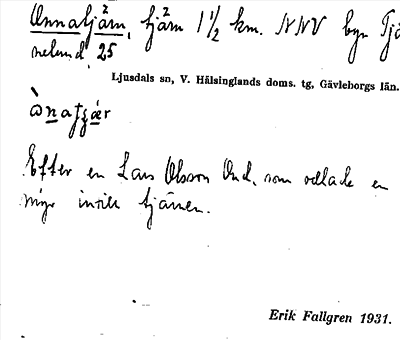 Annatjärn, tjärn 1 1/2 km. NNV byn Tjä
nelund 25
Ljusdals sn, V. Hälsinglands doms. tg, Gävleborgs län.
Efter en Lars Olsson And, som odlade en
myr intill tjärnen.
Erik Fallgren 1931.